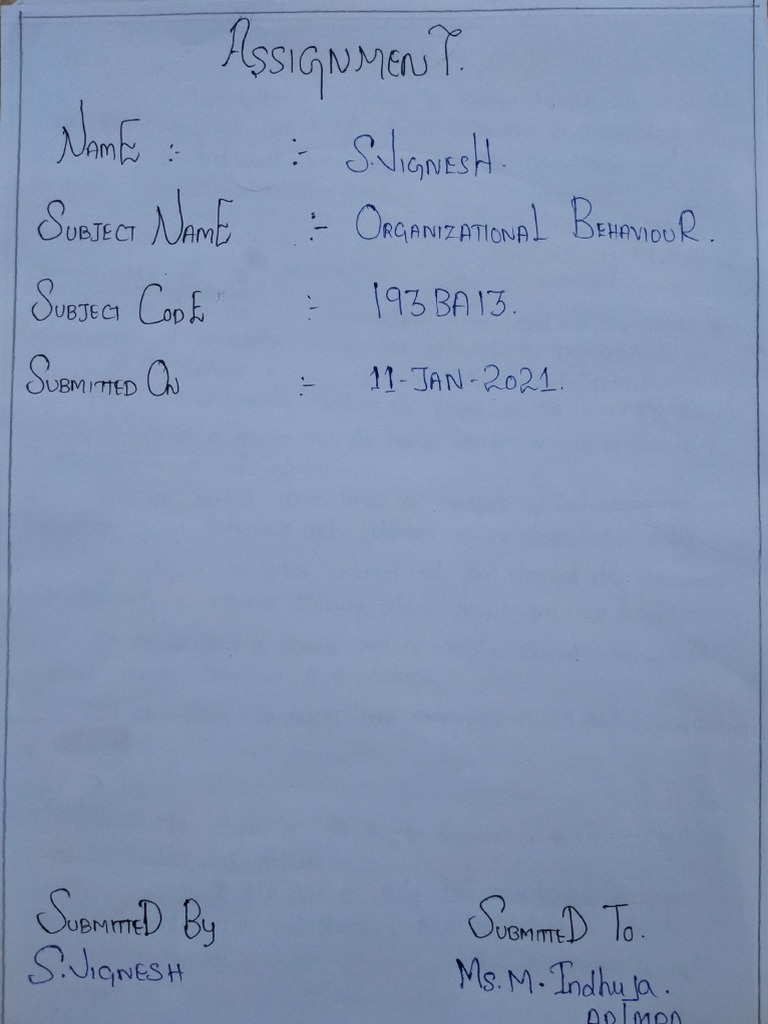 ASSIGNMENT.
NAME :- :- S.VIGNESH.
SUBJECT NAME :- ORGANIZATIONAL BEHAVIOUR.
SUBJECT CODE :- 193BA13.
SUBMITTED ON :- 11-JAN-2021.
SUBMITTED By SUBMITTED To.
S.VIGNESH Ms.M.Indhuja.